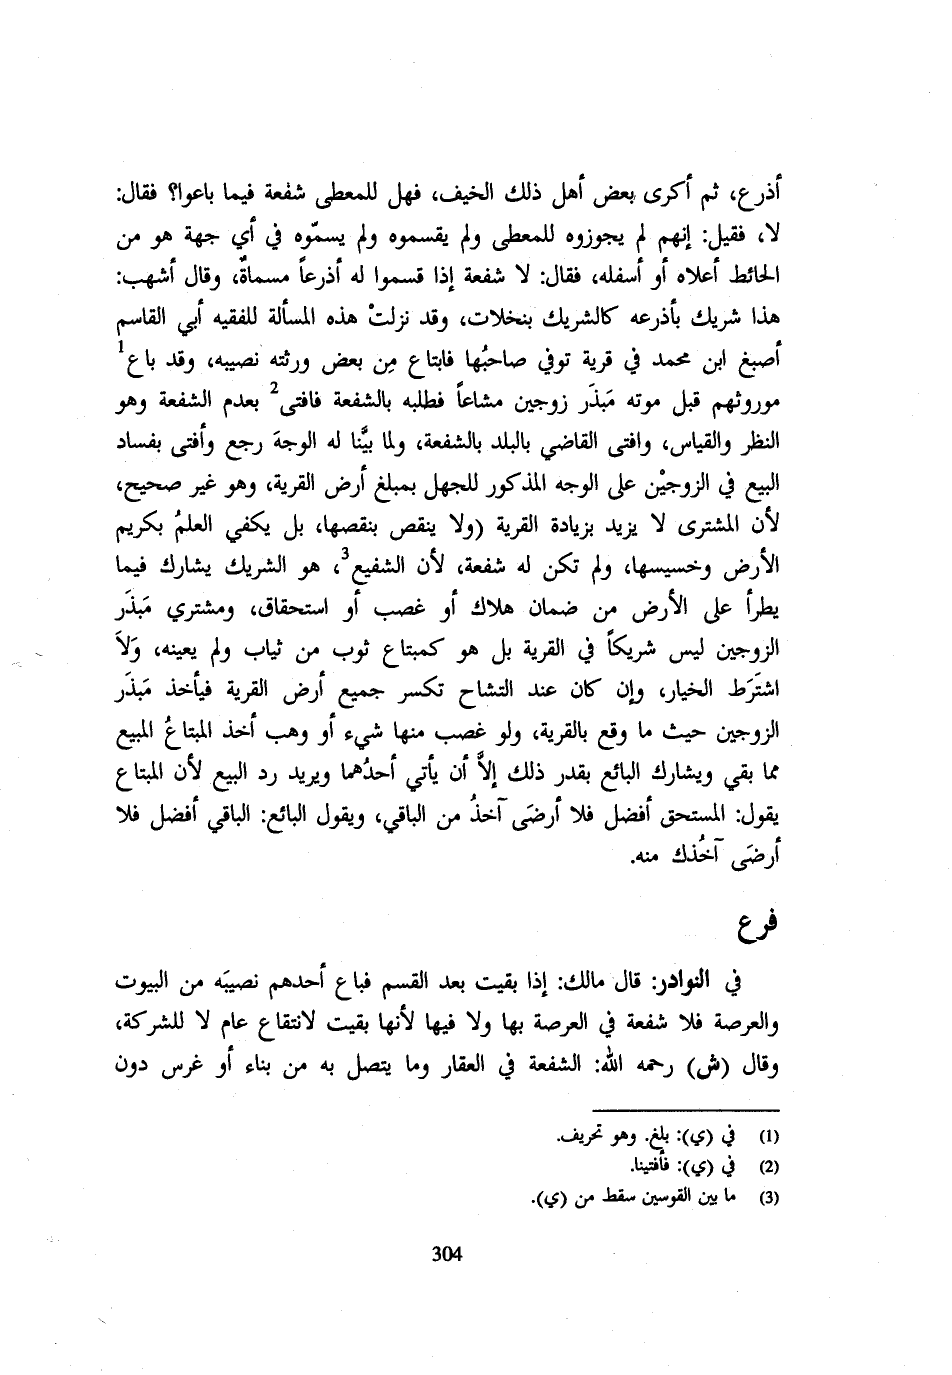 أذرع، ثم أكرى بعض أهل ذلك الخيف، فهل للمعطى شفعة فيما باعوا؟ فقال:
لا، فقيل: إنهم لم يجوزوه للمعطى ولم يقسموه ولم يسمّوه في أي جهة هو من
الحائط أعلاه أو أسفله، فقال: لا شفعة إذا قسموا له أذرعاً مسماةٌ، وقال أشهب:
هذا شريك بأذرعه كالشريك بنخلات، وقد نزلتْ هذه المسألة للفقيه أبي القاسم
أصبغ ابن محمد في قرية توفي صاحبُها فابتاع مِن بعض ورثته نصيبه، وقد باع1
موروثهم قبل موته مَبذَر زوجين مشاعاً فطلبه بالشفعة فافتى2 بعدم الشفعة وهو
النظر والقياس، وافتى القاضي بالبلد بالشفعة، ولما بيَّنا له الوجهَ رجع وأفتى بفساد
البيع في الزوجيْن على الوجه المذكور للجهل بمبلغ أرض القرية، وهو غير صحيح،
لأن المشترى لا يزيد بزيادة القرية (ولا ينقص بنقصها، بل يكفي العلمُ بكريم
الأرض وخسيسها، ولم تكن له شفعة، لأن الشفيع3، هو الشريك يشارك فيما
يطرأ على الأرض من ضمان هلاك أو غصب أو استحقاق، ومشتري مَبذَر
الزوجين ليس شريكاً في القرية بل هو كمبتاع ثوب من ثياب ولم يعينه، وَلاَ
اشتَرَط الخيار، وإن كان عند التشاح تكسر جميع أرض القرية فيأخذ مَبذَر
الزوجين حيث ما وقع بالقرية، ولو غصب منها شيء أو وهب أخذ المبتاعُ المبيع
مما بقي ويشارك البائع بقدر ذلك إلاَّ أن يأتي أحدُهما ويريد رد البيع لأن المبتاع
يقول: المستحق أفضل فلا أرضَى آخذُ من الباقي، ويقول البائع: الباقي أفضل فلا
أرضَى آخُذك منه.
فرع
في النوادر: قال مالك: إذا بقيت بعد القسم فباع أحدهم نصيبَه من البيوت
والعرصة فلا شفعة في العرصة بها ولا فيها لأنها بقيت لانتقاع عام لا للشركة،
وقال (ش) رحمه الله: الشفعة في العقار وما يتصل به من بناء أو غرس دون
(1) في (ي): بلغ. وهو تحريف.
(2) في (ي): فأفتينا.
(3) ما بين القوسين سقط من (ي).
304